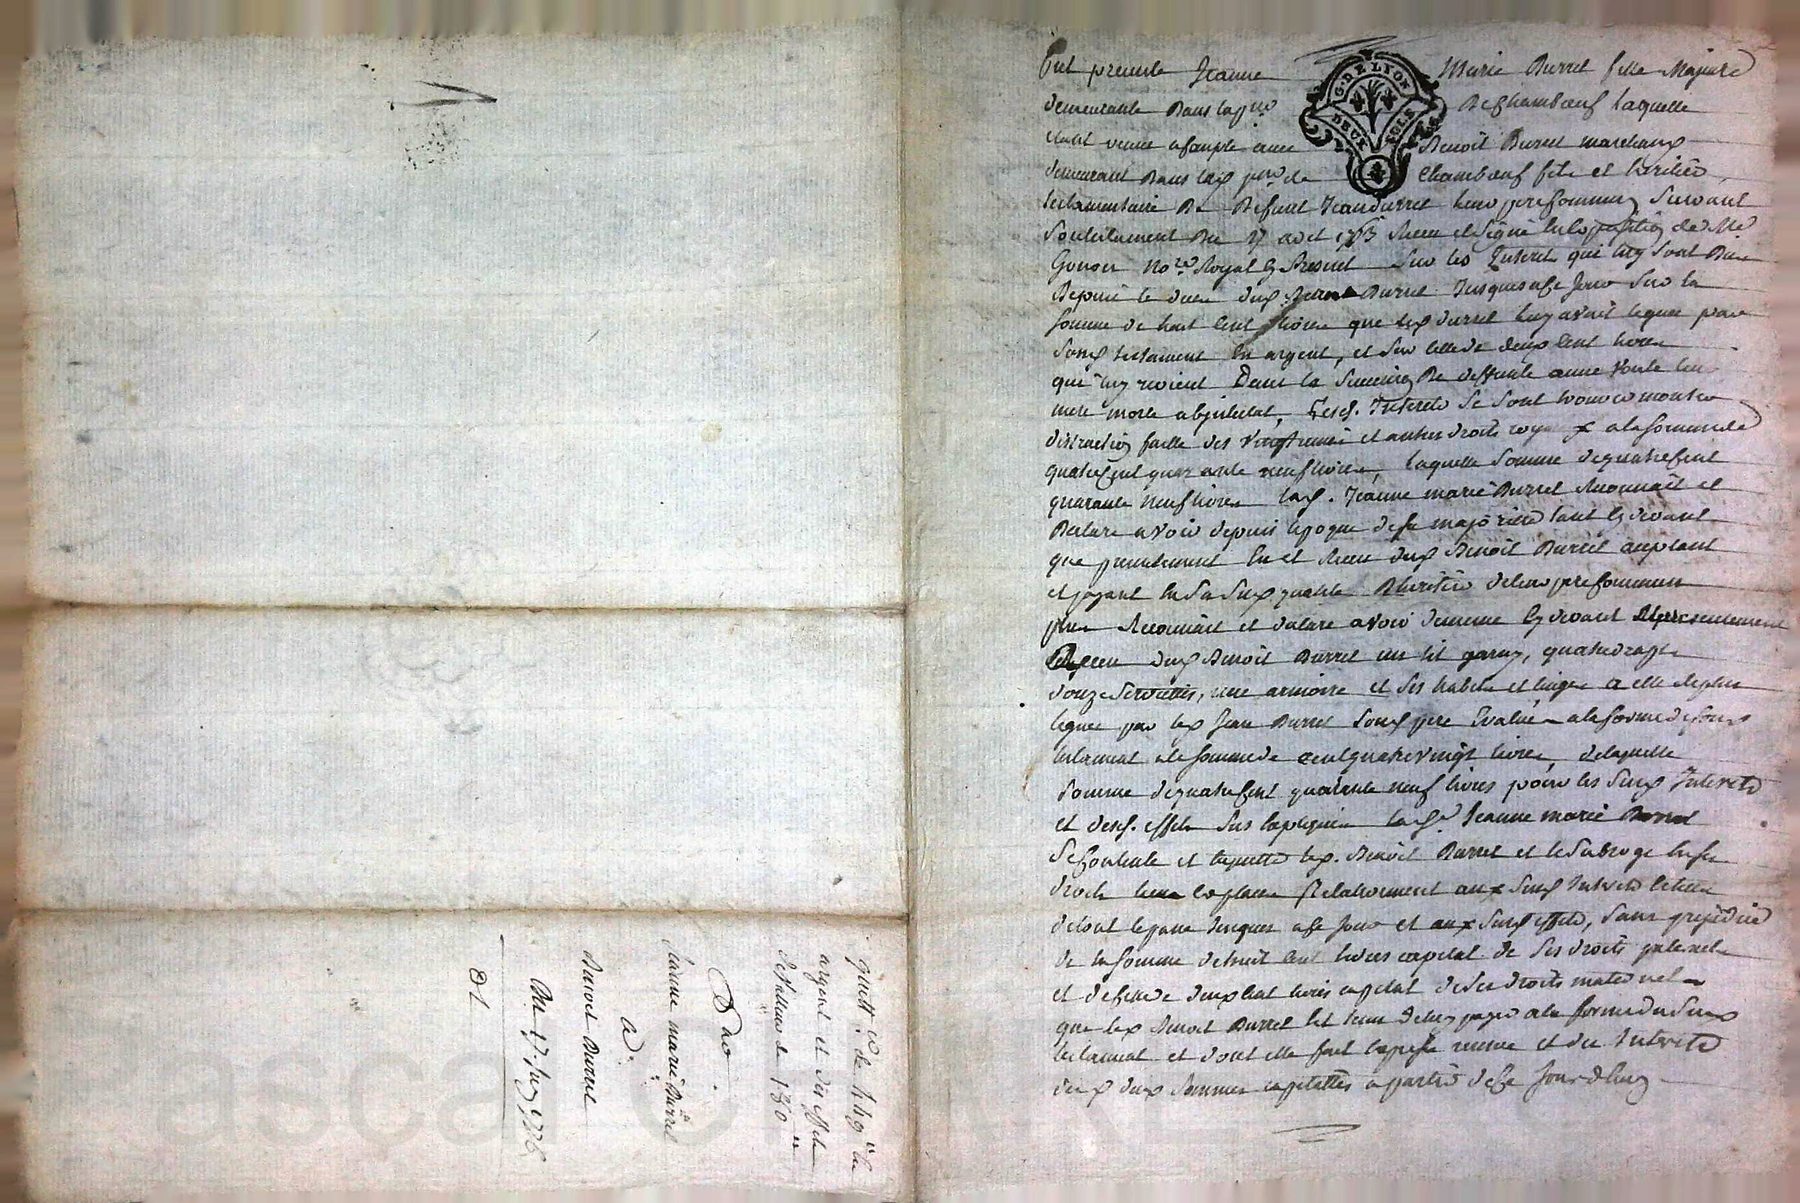 G. DE LYON
DEUX SOLS
Fut presente Jeanne Marie Durret fille Majeure
demeurante Dans la psse De Chambœuf laquelle
etant venue a compte avec Benoit Durret marchand
demeurant Dans lad psse de Chambœuf fils et heritier
testamentaire De Defunt Jean Durret leur pere commun suivant
son testament Du 17 avril Receu et signé de Me
Gonon Nore Royal sur les Interets qui luy sont Dus
Depuis le deces dud Durret Jusques a ce Jour sur la
somme de huit cent livres que led durret luy avait leguée par
sond testament en argent, et sur celle de deux cent livres
qui luy revient Dans la succession De deffunte anne leur
mere morte abjntestat, Lesd. Interets se sont trouvés monter
distraction faitte des vingtiemes et autres droits royaux a la somme de
quatre cent quarante neuf livres, laquelle somme de quatre cent
quarante neuf livres lad. Jeanne marie Durret Reconnait et
Declare avoir depuis l'epoque de sa majorité tant cy devant
que presentement eu et Receu dud Benoit Durret acceptant
et payant en sa susd qualité D'heritier de leur pere commun
plus Reconnait et declare avoir de meme cy devant et presentement
Receu dud Benoit Durret un lit garny, quatre draps
douze serviettes, une armoire et ses habits et linges a elle de plus
legués par led Jean Durret sond pere Evalués a la forme de son
testament a la somme de cent quatre vingt livres, de laquelle
somme de quatre cent quarante neuf livres pour les susd Interets
et desd. effets sus expliqués lad. Jeanne marie Durret
se contente et en quitte led. Benoit Durret et le subroge en ses
droits lieu et place Relativement aux susd Interets
de tout le passé Jusques a ce Jour et aux susd effets, sans prejudice
de la somme de huit cent livres capital de ses droits paternels
et de celle de deux cent livres capital de ses droits maternels
que led Benoit Durret est tenu de luy payer a la forme du susd
testament et dont elle fait expresse reserve et des Interets
desd deux sommes capitalles a partir de ce Jourd'huy
quittce de 449 ll en
argent et des effets
de valleur de 180 ll
Par
Jeanne marie Durret
a
Benoit Durret